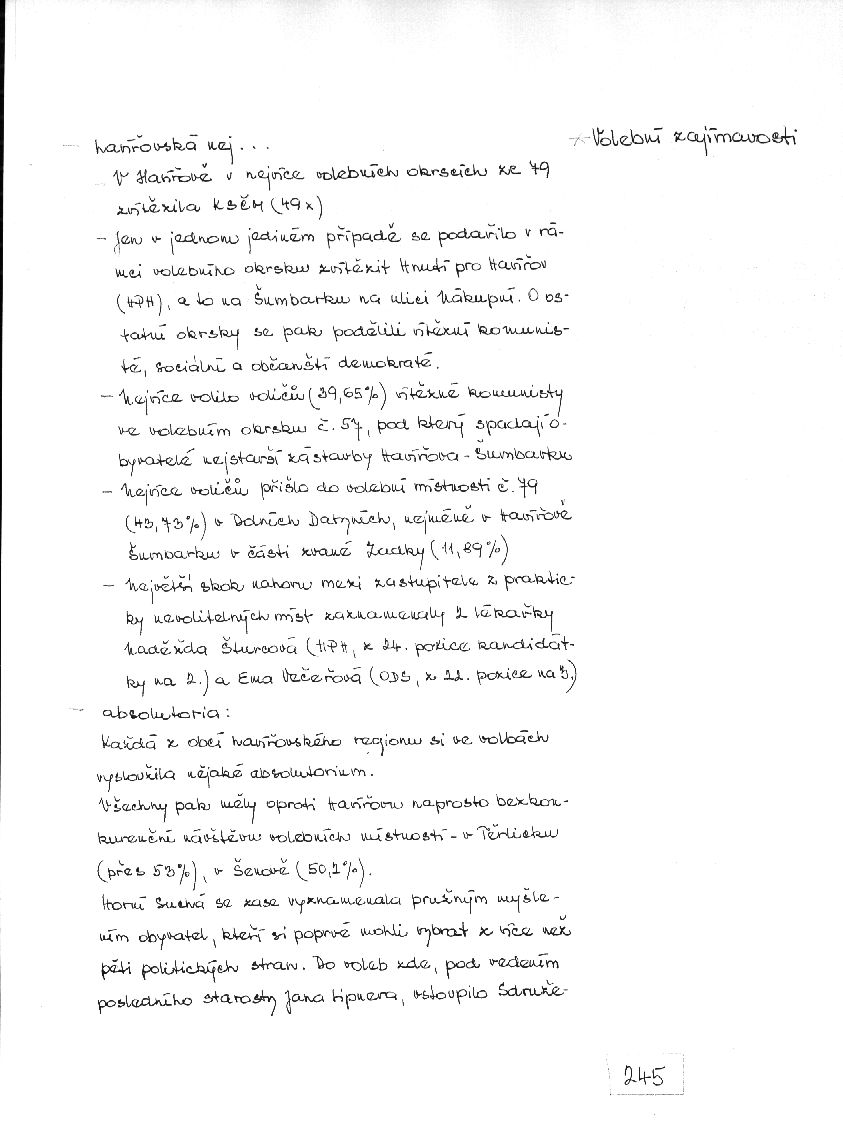 Volební zajímavosti
— havířovská nej...
V Havířově v nejvíce volebních okrscích ze 79
zvítězila KSČM (49x)
- Jen v jednom jediném případě se podařilo v rá-
mci volebního okrsku zvítězit Hnutí pro Havířov
(HPH), a to na Šumbarku na ulici Nákupní. O os-
tatní okrsky se pak podělili vítězní komunis-
té, sociální a občanští demokraté.
- Nejvíce volilo voličů (39,65%) vítězné komunisty
ve volebním okrsku č. 57, pod který spadají o-
byvatelé nejstarší zástavby Havířova - Šumbarku
- Nejvíce voličů přišlo do volební místnosti č. 79
(43,73%) v Dolních Datyních, nejméně v Havířově
Šumbarku v části zvané Zadky (11,89%)
- Největší skok nahoru mezi zastupitele z praktic-
ky nevolitelných míst zaznamenaly 2 lékařky
Naděžda Šturcová (HPH, z 24. pozice kandidát-
ky na 2.) a Ema Večeřová (ODS, z 22. pozice na 3.)
— absolutoria:
Každá z obcí havířovského regionu si ve volbách
vysloužila nějaké absolutorium.
Všechny pak měly oproti Havířovu naprosto bezkon-
kurenční návštěvu volebních místností - v Těrlicku
(přes 53%), v Šenově (50,2%).
Horní Suchá se zase vyznamenala pružným myšle-
ním obyvatel, kteří si poprvé mohli vybrat z více než
pěti politických stran. Do voleb zde, pod vedením
posledního starosty Jana Lipnera, vstoupilo Sdruže-
245